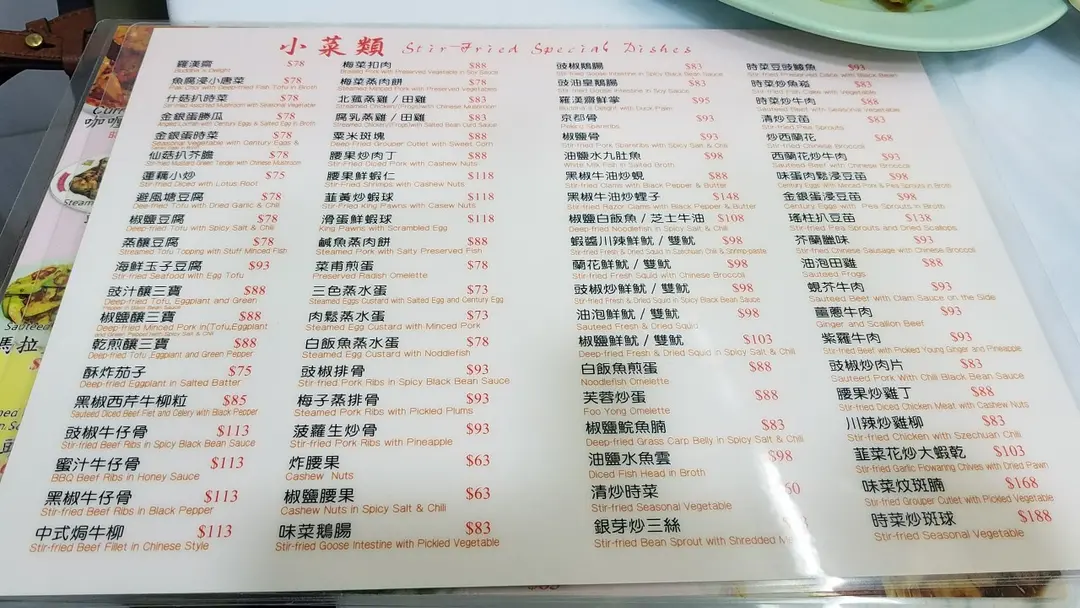 小菜類 Stir-Fried Special Dishes
羅漢齋 $78
Buddha's Delight
魚腐浸小唐菜 $78
Pak Choi with Deep-fried Fish Tofu in Broth
什菇扒時菜 $78
Stir-fried Mixed Mushroom with Seasonal Vegetable
金銀蛋勝瓜 $78
Angled Loofah with Century Eggs & Salted Egg in Broth
金銀蛋時菜 $78
Seasonal Vegetable with Century Eggs &
仙菇扒芥膽 $78
Stir-fried Mustard Green Tender with Chinese Mushroom
蓮藕小炒 $75
Stir-fried Diced with Lotus Root
避風塘豆腐 $78
Deep-fried Tofu with Dried Garlic & Chili
椒鹽豆腐 $78
Deep-fried Tofu with Spicy Salt & Chili
蒸釀豆腐 $78
Steamed Tofu Topping with Stuff Minced Fish
海鮮玉子豆腐 $93
Stir-fried Seafood with Egg Tofu
豉汁釀三寶 $88
Deep-fried Tofu, Eggplant and Green
Pepper in Black Bean Sauce
椒鹽釀三寶 $88
Deep-fried Minced Pork in(Tofu,Eggplant
and Green Pepper)with Spicy Salt & Chili
乾煎釀三寶 $88
Deep-fried Tofu,Eggplant and Green Pepper
酥炸茄子 $75
Deep-fried Eggplant in Salted Batter
黑椒西芹牛柳粒 $85
Sauteed Diced Beef Filet and Celery with Black Pepper
豉椒牛仔骨 $113
Stir-fried Beef Ribs in Spicy Black Bean Sauce
蜜汁牛仔骨 $113
BBQ Beef Ribs in Honey Sauce
黑椒牛仔骨 $113
Stir-fried Beef Ribs in Black Pepper
中式焗牛柳 $113
Stir-fried Beef Fillet in Chinese Style
梅菜扣肉 $88
Braised Pork with Preserved Vegetable in Soy Sauce
梅菜蒸肉餅 $78
Steamed Minced Pork with Preserved Vegetables
北菰蒸雞 / 田雞 $83
Steamed Chicken/(Frog)with Chinese Mushroom
腐乳蒸雞 / 田雞 $83
Steamed Chicken/(Frog)with Salted Bean Curd Sauce
粟米斑塊 $88
Deep Fried Grouper Cutlet with Sweet Corn
腰果炒肉丁 $88
Stir-fried Diced Pork with Cashew Nuts
腰果鮮蝦仁 $118
Stir-fried Shrimps with Cashew Nuts
韮黃炒蝦球 $118
Stir-fried King Pawns with Cashew Nuts
滑蛋鮮蝦球 $118
King Pawns with Scrambled Egg
鹹魚蒸肉餅 $88
Steamed Pork with Salty Preserved Fish
菜甫煎蛋 $78
Preserved Radish Omelette
三色蒸水蛋 $73
Steamed Eggs Custard with Salted Egg and Century Egg
肉鬆蒸水蛋 $73
Steamed Egg Custard with Minced Pork
白飯魚蒸水蛋 $78
Steamed Egg Custard with Noddlefish
豉椒排骨 $93
Stir-fried Pork Ribs in Spicy Black Bean Sauce
梅子蒸排骨 $93
Steamed Pork Ribs with Pickled Plums
菠蘿生炒骨 $93
Stir-fried Pork Ribs with Pineapple
炸腰果 $63
Cashew Nuts
椒鹽腰果 $63
Cashew Nuts in Spicy Salt & Chili
味菜鵝腸 $83
Stir-fried Goose Intestine with Pickled Vegetable
豉椒鵝腸 $83
Stir-fried Goose Intestine in Spicy Black Bean Sauce
豉油皇鵝腸 $83
Stir-fried Goose Intestine in Soy Sauce
羅漢齋鮮掌 $95
Buddha's Delight with Duck Paw
京都骨 $93
Peking Spareribs
椒鹽骨 $93
Stir-fried Pork Spareribs with Spicy Salt & Chili
油鹽水九肚魚 $98
White Milk Fish in Salted Broth
黑椒牛油炒蜆 $88
Stir-fried Clams with Black Pepper & Butter
黑椒牛油炒蟶子 $148
Stir-fried Razor Clams with Black Pepper & Butter
椒鹽白飯魚 / 芝士牛油 $108
Deep-fried Noodlefish in Spicy Salt & Chili
蝦醬川辣鮮魷 / 雙魷 $98
Stir-fried Fresh & Dried Squid in Szechuan Chili & Shrimp-paste
蘭花鮮魷 / 雙魷 $98
Stir-fried Fresh Squid with Chinese Broccoli
豉椒炒鮮魷 / 雙魷 $98
Stir-fried Fresh & Dried Squid in Spicy Black Bean Sauce
油泡鮮魷 / 雙魷 $98
Sauteed Fresh & Dried Squid
椒鹽鮮魷 / 雙魷 $103
Deep-fried Fresh & Dried Squid in Spicy Salt & Chili
白飯魚煎蛋 $88
Noodlefish Omelette
芙蓉炒蛋 $88
Foo Yong Omelette
椒鹽鯇魚腩 $83
Deep-fried Grass Carp Belly in Spicy Salt & Chili
油鹽水魚雲 $98
Diced Fish Head in Broth
清炒時菜 60
Stir-fried Seasonal Vegetable
銀芽炒三絲
Stir-fried Bean Sprout with Shredded
時菜豆豉鯪魚 $93
Stir-fried Preserved Dace with Black Bean
時菜炒魚崧 $83
Stir-fried Fish Cake with Vegetable
時菜炒牛肉 $88
Sauteed Beef with Seasonal Vegetable
清炒豆苗 $83
Stir-fried Pea Sprouts
炒西蘭花 $68
Stir-fried Chinese Broccoli
西蘭花炒牛肉 $93
Sauteed Beef with Chinese Broccoli
味蛋肉鬆浸豆苗 $98
Century Eggs with Minced Pork & Pea Sprouts in Broth
金銀蛋浸豆苗 $98
Century Eggs with Pea Sprouts in Broth
瑤柱扒豆苗 $138
Stir-fried Pea Sprouts and Dried Scallops
芥蘭臘味 $93
Stir-fried Chinese Sausage with Chinese Broccoli
油泡田雞 $88
Sauteed Frogs
蜆芥牛肉 $93
Sauteed Beef with Clam Sauce on the Side
薑蔥牛肉 $93
Ginger and Scallion Beef
紫羅牛肉 $93
Stir-fried Beef with Pickled Young Ginger and Pineapple
豉椒炒肉片 $83
Sauteed Pork With Chili Black Bean Sauce
腰果炒雞丁 $88
Stir-fried Diced Chicken Meat with Cashew Nuts
川辣炒雞柳 $83
Stir-fried Chicken with Szechuan Chili
韮菜花炒大蝦乾 $103
Stir-fried Garlic Flowaring Chives with Dried Pawn
味菜炆斑腩 $168
Stir-fried Grouper Cutlet with Pickled Vegetable
時菜炒斑球 $188
Stir-fried Seasonal Vegetable